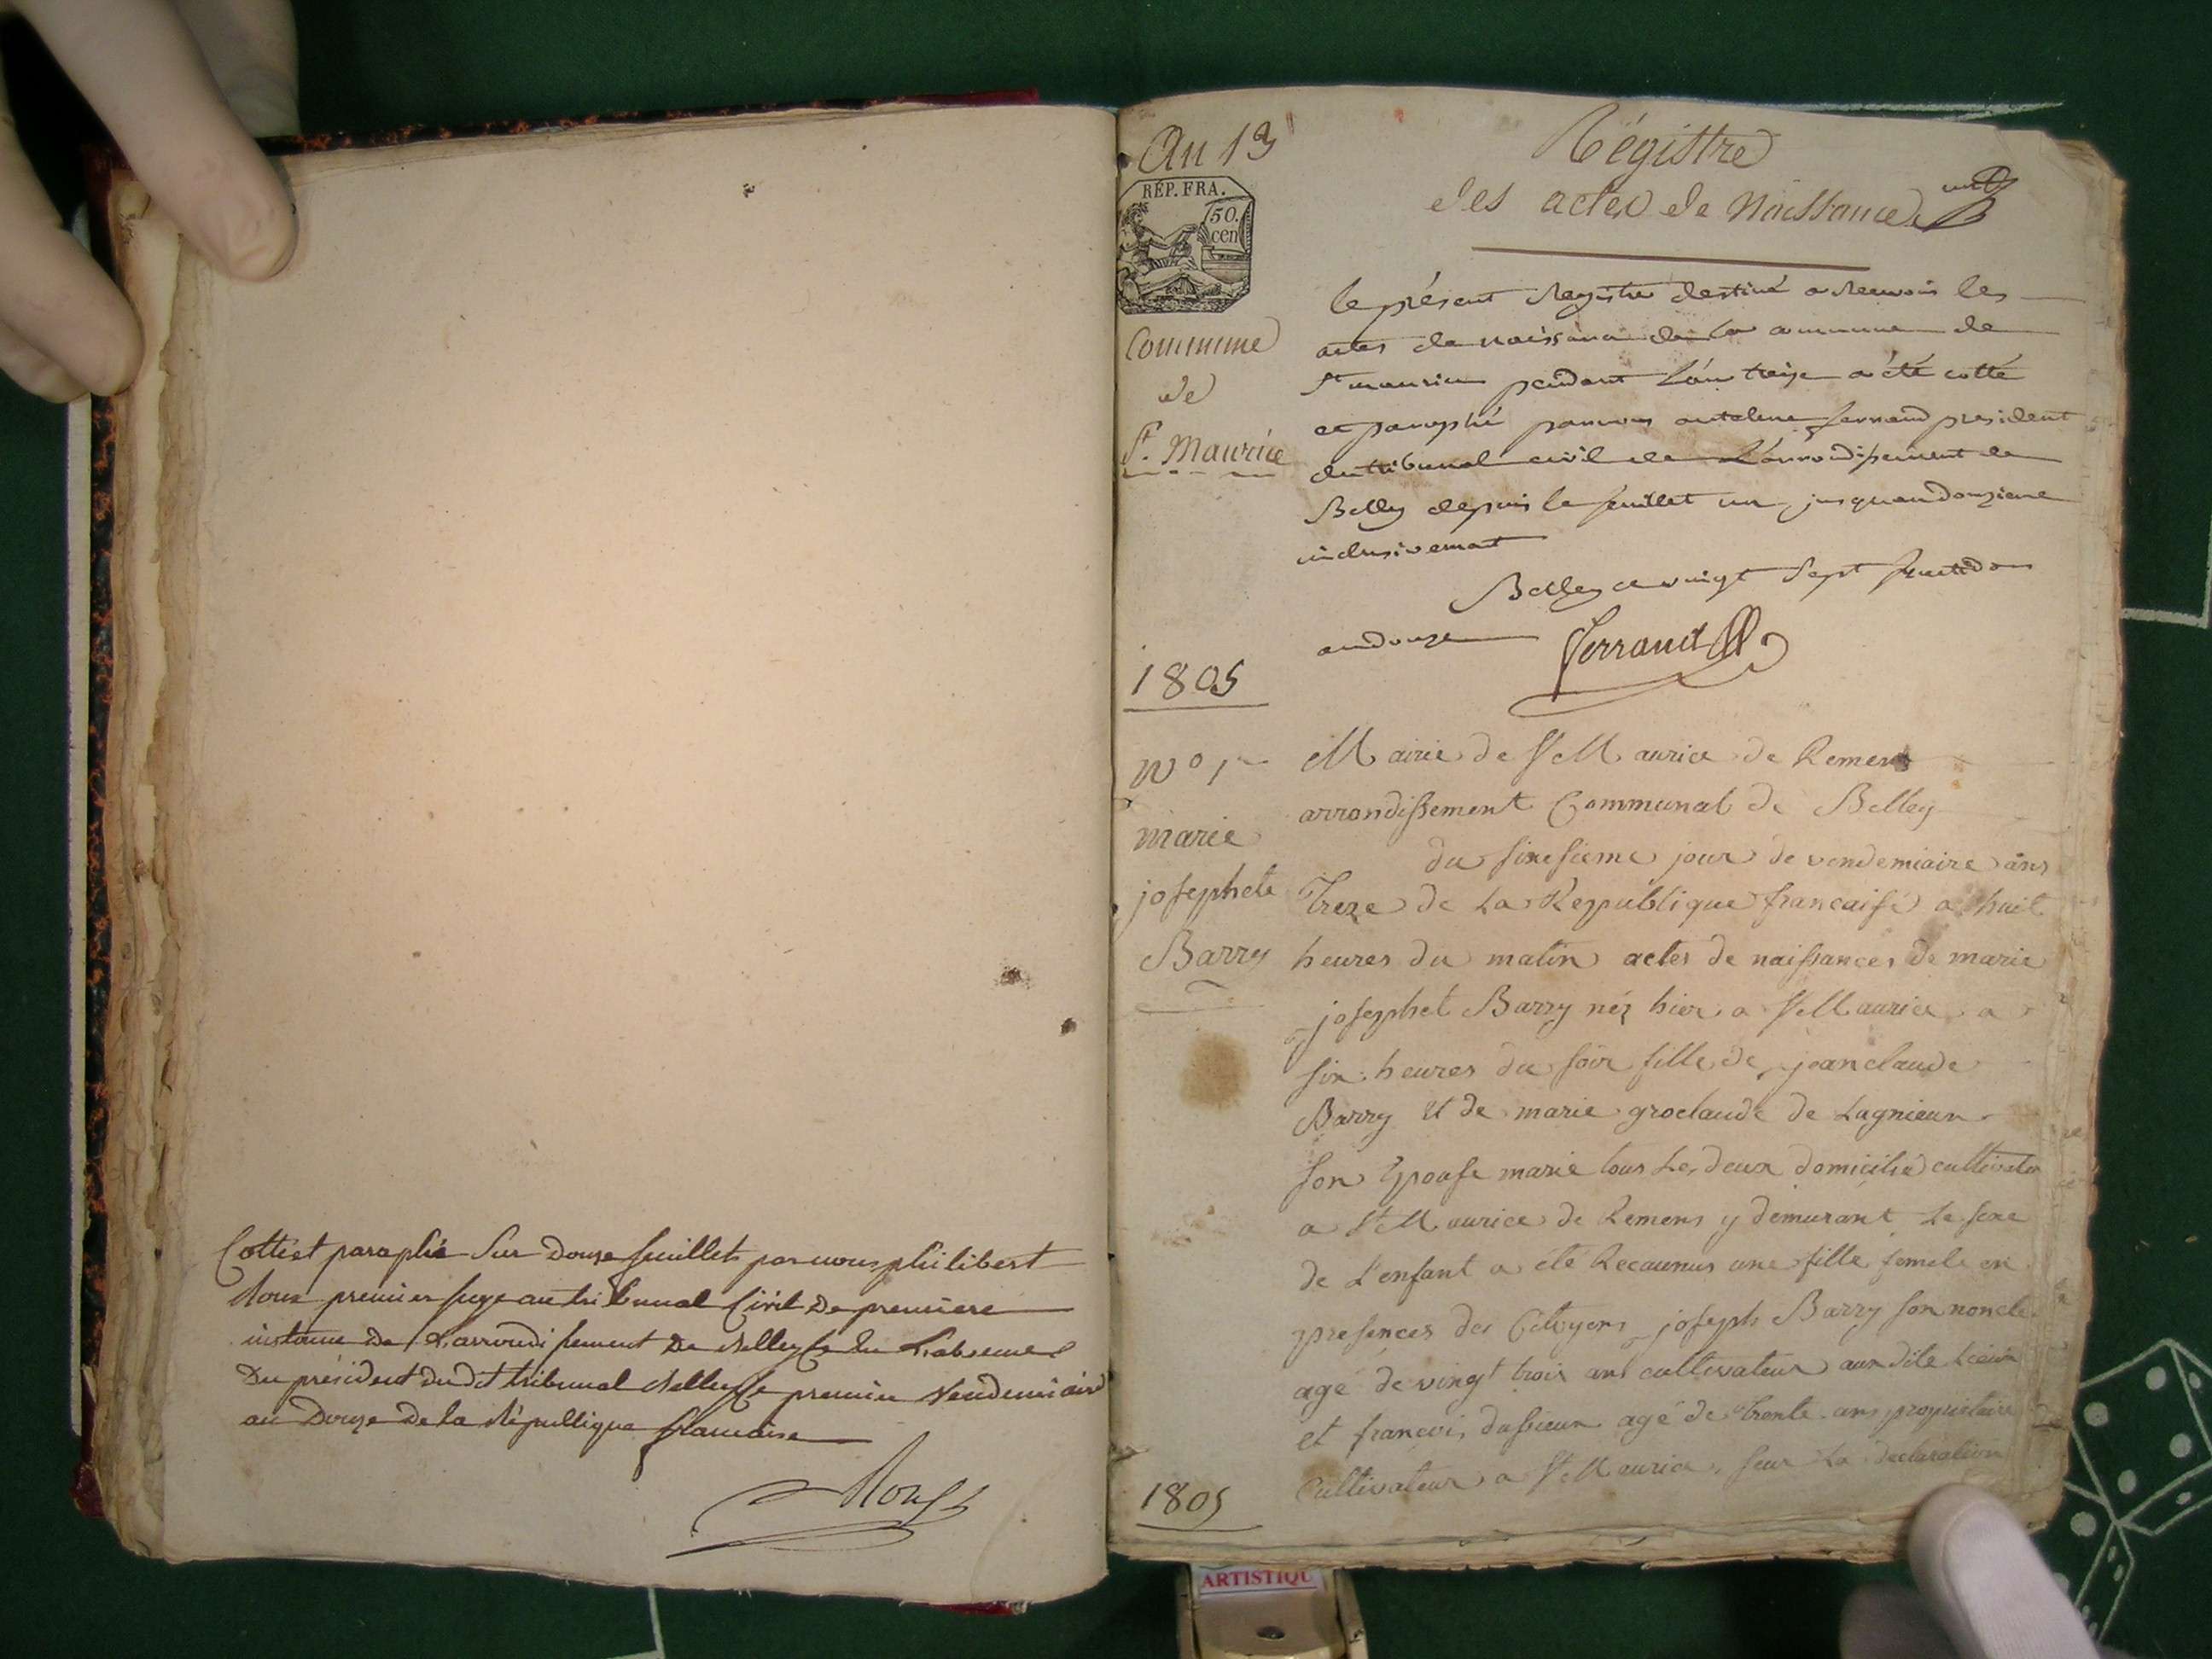 Cottéet paraphé Sur Douze feuillets par nous philibert
Roux premier juge au tribunal Civil De première
instance De L'arrondissement De Belley En L'absence
Du président du dit tribunal Belley le premier Vendemiaire
an Douze De la République francaise
Roux
An 13
RÉP. FRA.
50.
cen
Commune
de
St. Maurice
Régistre
des actes de Naissance
le présent Registre destiné a Recevoir les
actes de naissance de la commune de
St maurice pendant L'an treize a été cotté
et paraphé par nous antelme ferrand president
du tribunal civil de L'arrondissement de
Belley depuis le feuillet un jusqu'au douzieme
inclusivement
Belley ce vingt Sept fructidor
an douze
Ferrand
1805
No 1
marie
josephete
Barry
Mairie de St Maurice de Remens
arrondissement Communal de Belley
du sixesieme jour de vendemiaire ans
Treze de La Republique francaise a huit
heures du matin actes de naissances de marie
josephet Barry néz hier a St Maurice a
six heures du soir fille de jean claude
Barry et de marie groclaude de Lagnieux
son Epouse marie tous Les deux domicilié cultivater
a St Maurice de Remens y demurant Le sexe
de L'enfant a été Recaunus une fille femele en
presences des Citoyens joseph Barry son noncle
age de vingt trois ans cultivateur aux dite Lieux
et francois dussieux agé de trente ans propriétaire
Cultivateur a St Maurice, seur La declaration
1805
ARTISTIQU